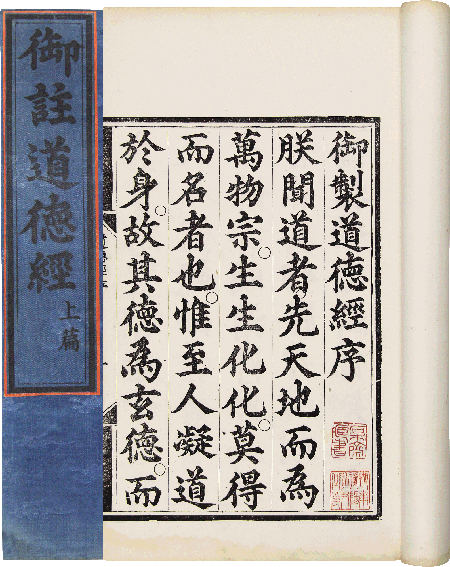 御註道德經
上篇
御製道德經序
朕聞道者先天地而為
萬物宗。生生化化。莫得
而名者也。惟至人凝道
於身。故其德為玄德。而